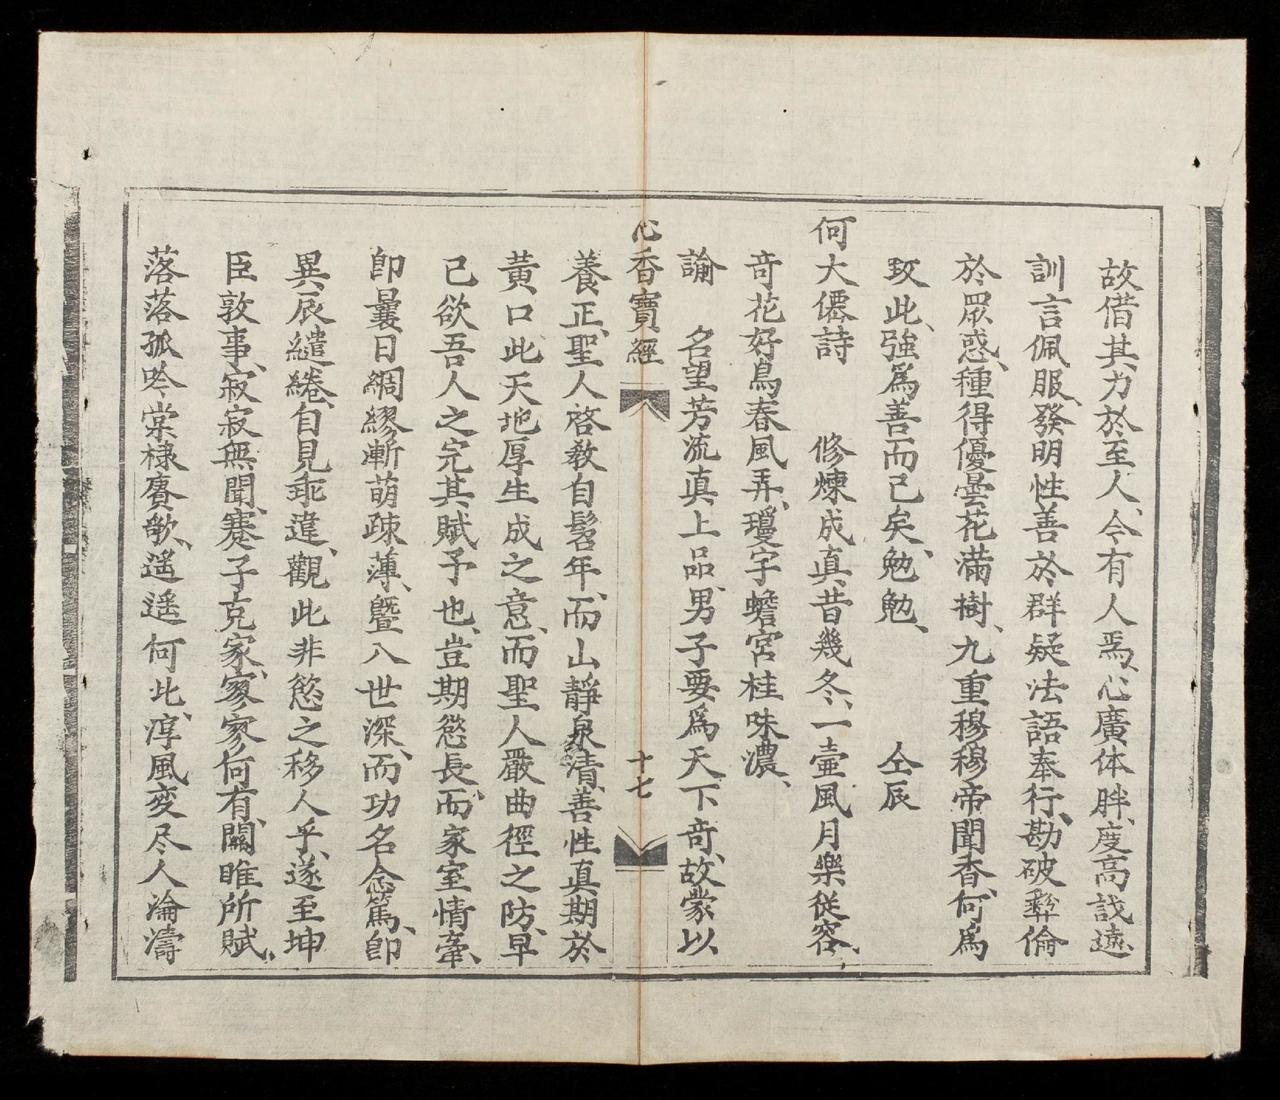 故借其力於至人、今有人焉、心廣体胖、度高識遠、
訓言佩服、發明性善於群疑、法語奉行、勘破彝倫
於眾惑、種得優曇花滿樹、九重穆穆帝聞香、何為
攷此、強爲善而已矣、勉勉、　仝辰
何大僊詩　修煉成真昔幾冬、一壼風月樂從容、
竒花好鳥春風弄、瓊宇蟾宮桂味濃、
諭　名望芳流真上品、男子要爲天下竒、故蒙以
心香寶經　十七
養正、聖人啓教自髫年、而山靜泉清、善性真期於
黃口、此天地厚生成之意、而聖人嚴曲徑之防、早
已欲吾人之完其賦予也、豈期慾長、而家室情牽、
卽曩日綢繆漸萌疎薄、曁八世深、而功名念篤、卽
異辰繾綣、自見乖違、觀此非慾之移人乎、遂至坤
臣敦事、寂寂無聞、蹇子克家、寥寥何有、關雎所賦、
落落孤吟、棠棣賡歌、遥遥何此、淳風变尽、人淪濤